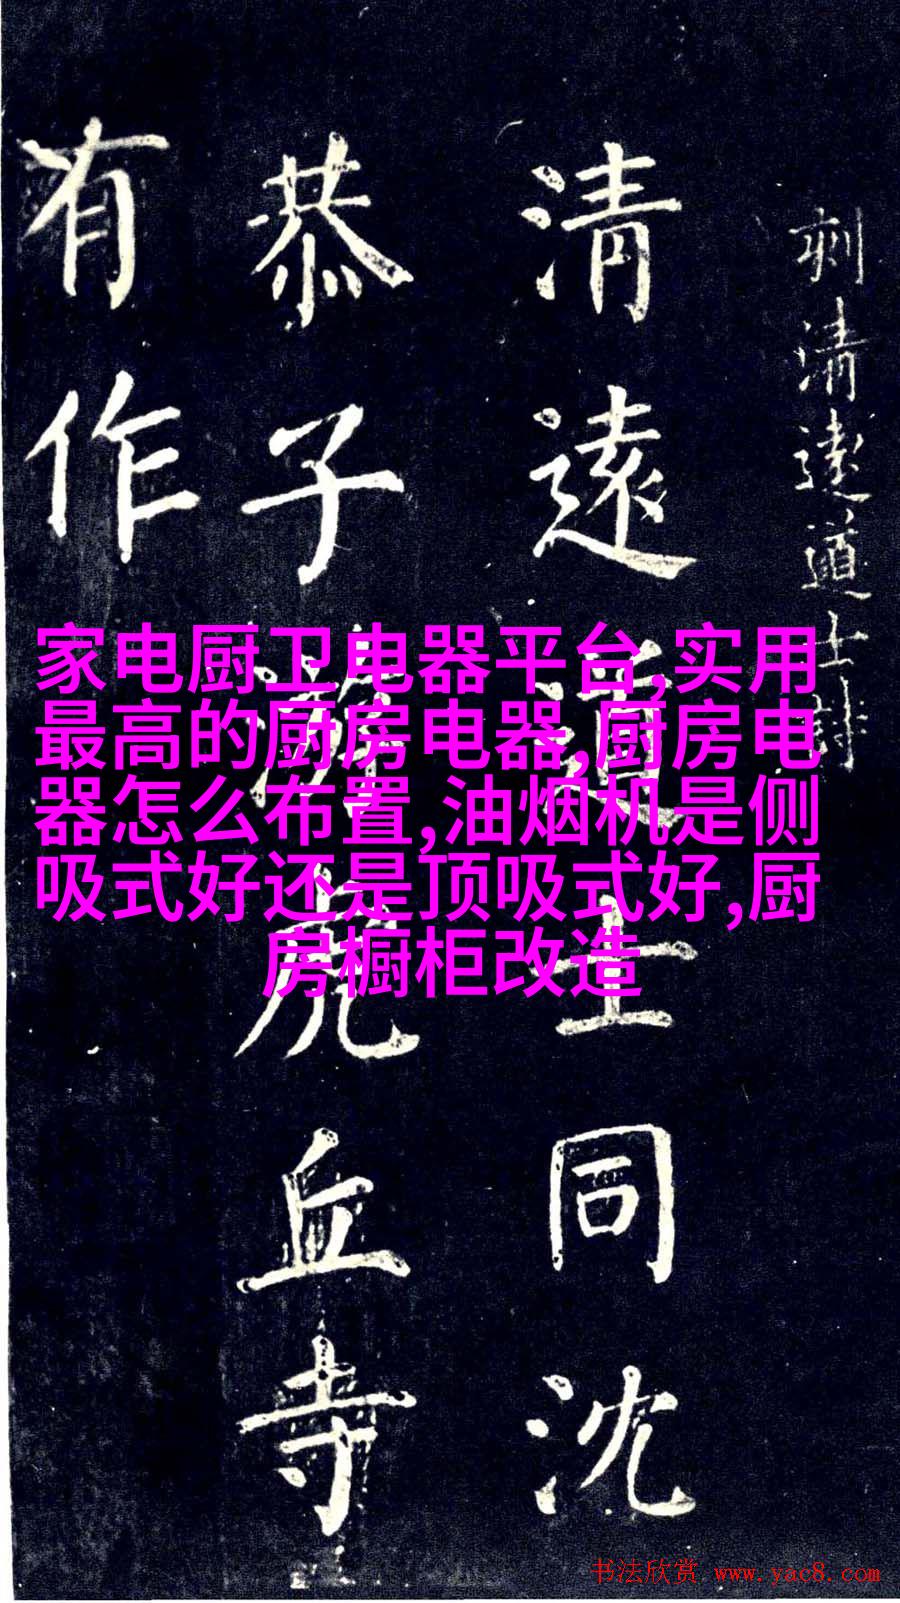 刻清遠道士詩
清遠道士同沈
恭子遊虎丘寺
有作
家电厨卫电器平台,实用
最高的厨房电器,厨房电
器怎么布置,油烟机是侧
吸式好还是顶吸式好,厨
房橱柜改造
书法欣赏 www.yac8.com